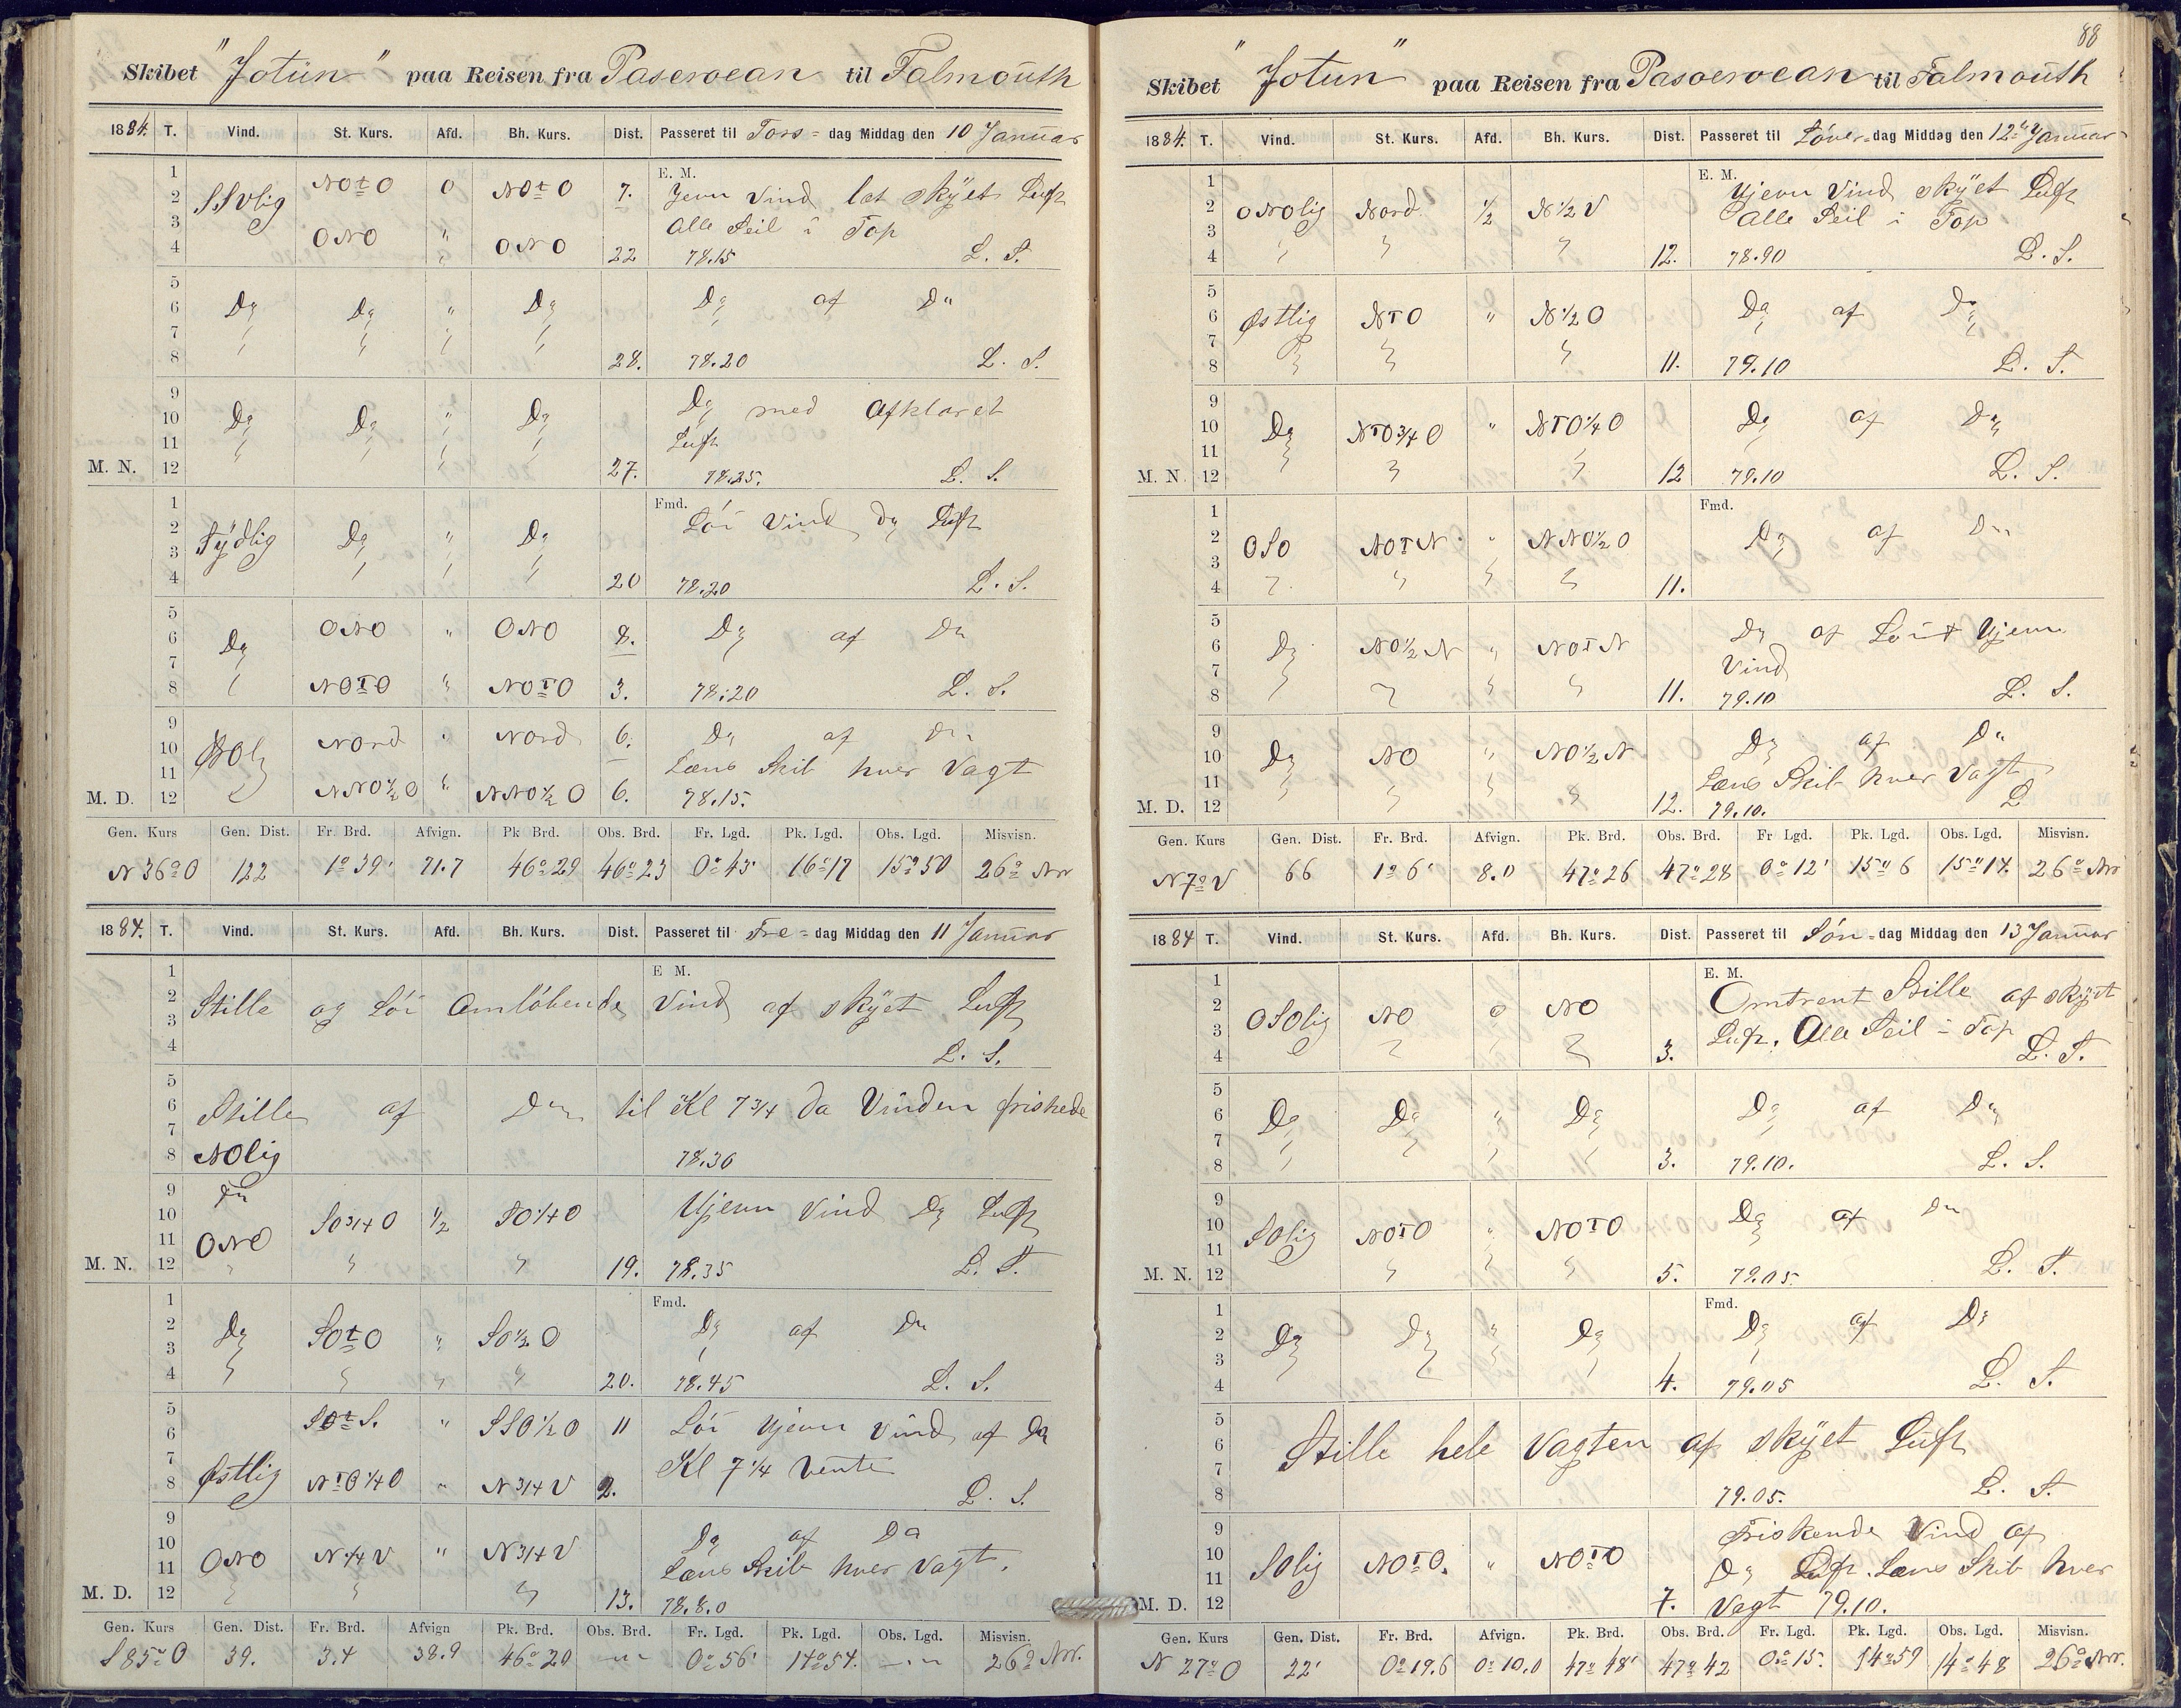 Skibet "Jotun" paa Reisen fra Paseroean til Falmouth
1884. T. Vind. St. Kurs. Afd. Bh. Kurs. Dist. Passeret til Tors-dag Middag den 10 Januar
1 E. M.
2 SSvlig NOtO 0 NOtO 7. Jevn Vind let skyet Luft
3 Alle Seil i Top
4 ONO " ONO 22 78.15 L. S.
5
6 Do Do " Do Do af Do
7
8 28. 78.20 L. S.
9
10 Do Do " Do Do med afklaret
11 Luft
M. N. 12 27. 78.25. L. S.
1 Fmd.
2 Sydlig Do " Do Lör Vind Do Luft
3
4 20 78.20 L. S.
5
6 Do ONO " ONO 8. Do af Do
7
8 NOTO " NOTO 3. 78.20 L. S.
9
10 Nord " Nord 6. Do af Do
11 Læns Skib hver Vagt
M. D. 12 NNO½O " NNO½O 6. 78.15.
Gen. Kurs Gen. Dist. Fr. Brd. Afvign. Pk Brd. Obs. Brd. Fr. Lgd. Pk. Lgd. Obs. Lgd. Misvisn.
N 36° O 122 1° 39' 71.7 46° 29 46° 23 0° 45' 16° 17 15° 50 26° NV
1884. T. Vind. St. Kurs. Afd. Bh. Kurs. Dist. Passeret til Fre-dag Middag den 11 Januar
1 E M.
2 Stille og Lör Omlöbende Vind af skyet Luft
3
4 L. S.
5
6 Stille af Do til Kl 7¾ da Vinden friskede
7
8 NOlig 78.30
9 Do
10 SO¾O ½ SO¼O Ujevn Vind Do Luft
11 ONO
M. N. 12 19. 78.35 L. S.
1 Fmd.
2 Do SOtO " SO½O Do af Do
3
4 20. 78.45 L. S.
5 SOtS. " SSO½O 11 Lör Ujevn Vind af Do
6
7 Kl 7¼ vente
8 Østlig NTO¼O " N¾V 2. L. S.
9
10 Do af Do
11 ONO N¼V " N¾V Læns Skib hver Vagt.
M. D. 12 13. 78.8.0
Gen. Kurs Gen. Dist. Fr. Brd. Afvign Pk. Brd. Obs. Brd. Fr. Lgd. Pk. Lgd. Obs. Lgd. Misvisn.
S 85° O 39. 3.4 38.9 46° 20 — " 0° 56' 14° 54. — " 26° NV.
88
Skibet "Jotun" paa Reisen fra Pasoeroean til Falmouth
1884. T. Vind. St. Kurs. Afd. Bh. Kurs. Dist. Passeret til Löver-dag Middag den 12te Januar
1 E. M.
2 ONOlig Nord ½ N½V Ujevn Vind skyet Luft
3 Alle Seil i Top
4 12. 78.90 L. S.
5
6 Østlig NTO " N½O Do af Do
7
8 11. 79.10 L. S.
9
10 Do NTO¾O " NTO¼O Do af Do
11
M. N. 12 12 79.10 L. S.
1 Fmd.
2 OSO NOTN " NNO½O Do af Do
3
4 11.
5
6 Do NO½N " NOTN Do af Lör t Ujevn
7 Vind
8 11. 79.10 L. S.
9
10 Do NO " NO½N Do af Do
11 Læns Skib hver Vagt
M. D. 12 12. 79.10. L
Gen. Kurs Gen. Dist. Fr. Brd. Afvign. Pk. Brd. Obs. Brd. Fr Lgd. Pk. Lgd. Obs. Lgd. Misvisn.
N 7° V 66 1° 6' 8.0 47° 26 47° 28 0° 12' 15° 6 15° 14. 26° NV
1884 T. Vind. St. Kurs. Afd. Bh. Kurs. Dist. Passeret til Sön-dag Middag den 13 Januar
1 E. M.
2 OSOlig NO 0 NO Omtrent Stille af skyet
3 Luft. Alle Seil i Top
4 3. L. S.
5
6 Do Do " Do Do af Do
7
8 3. 79.10. L. S.
9
10 SOlig NOTO " NOTO Do af Do
11
M. N. 12 5. 79.05 L. S.
1 Fmd.
2 Do Do " Do Do af Do
3
4 4. 79.05 L. S.
5
6 Stille hele Vagten af skyet Luft
7
8 79.05. L. S.
9 Friskende Vind af
10 SOlig NOTO. " NOTO Do Luft. Læns Skib hver
11
M. D. 12 7. Vagt 79.10.
Gen. Kurs Gen. Dist. Fr. Brd. Afvign. Pk. Brd. Obs. Brd. Fr. Lgd. Pk. Lgd. Obs. Lgd. Misvisn.
N 27° O 22' 0° 19.6 0° 10.0 47° 48' 47° 42 0° 15'. 14° 59 14° 48 26° NV.